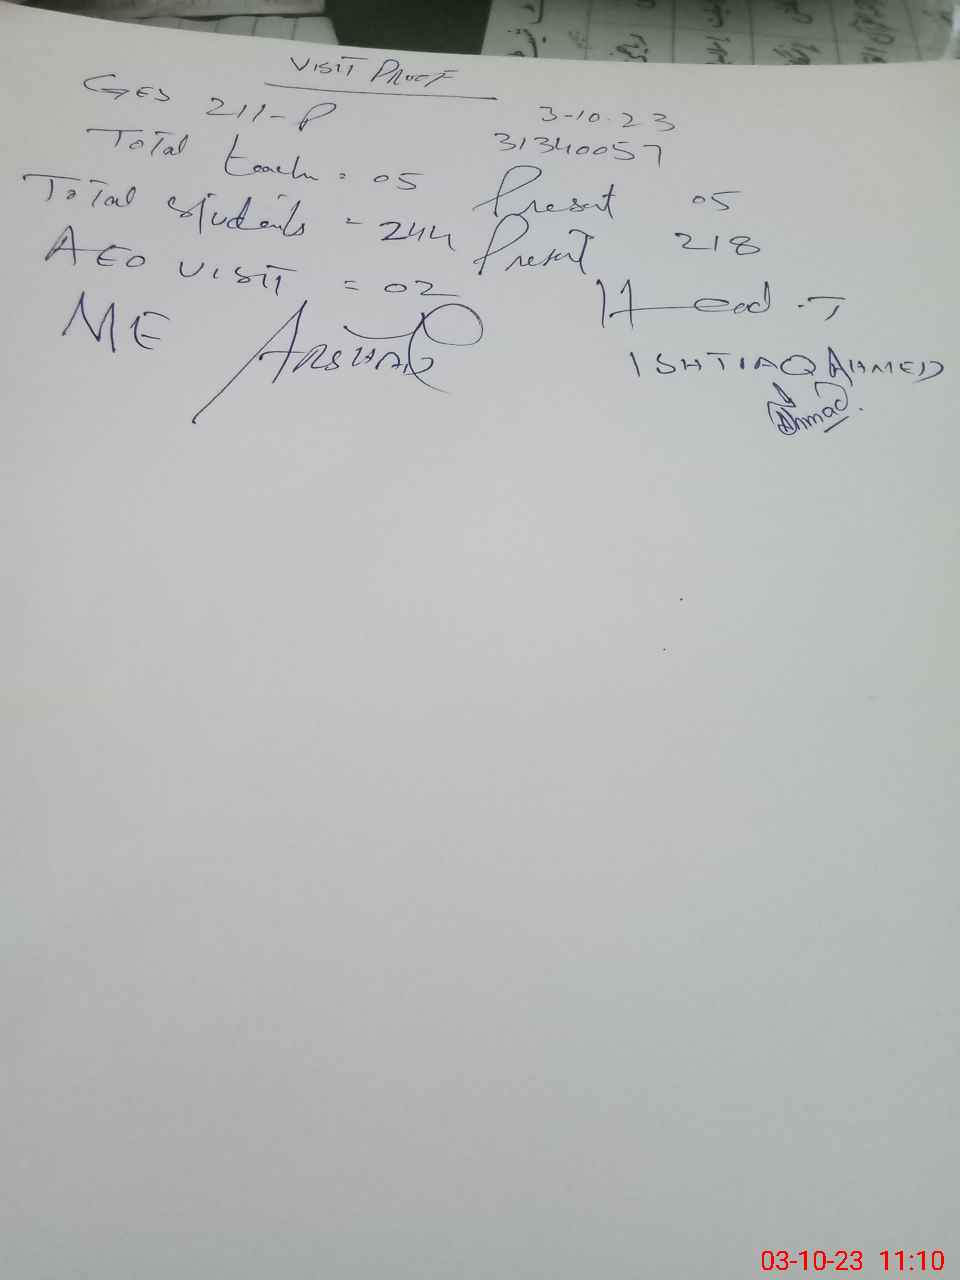 VISIT PROOF
GES 211-P 3-10-23
31340057
Total teach = 05 Present 05
Total students = 244 Present 218
AEO VISIT = 02
Head-T
ME ARSHAD
ISHTIAQ AHMED
Ahmad
03-10-23 11:10